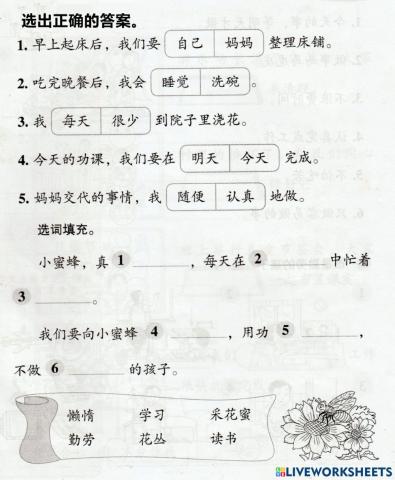 选出正确的答案。
1. 早上起床后，我们要 自己 妈妈 整理床铺。
2. 吃完晚餐后，我会 睡觉 洗碗 。
3. 我 每天 很少 到院子里浇花。
4. 今天的功课，我们要在 明天 今天 完成。
5. 妈妈交代的事情，我 随便 认真 地做。
选词填充。
小蜜蜂，真 1 ________，每天在 2 ________ 中忙着
3 ________。
我们要向小蜜蜂 4 ________，用功 5 ________，
不做 6 ________ 的孩子。
懒惰 学习 采花蜜
勤劳 花丛 读书
LIVEWORKSHEETS